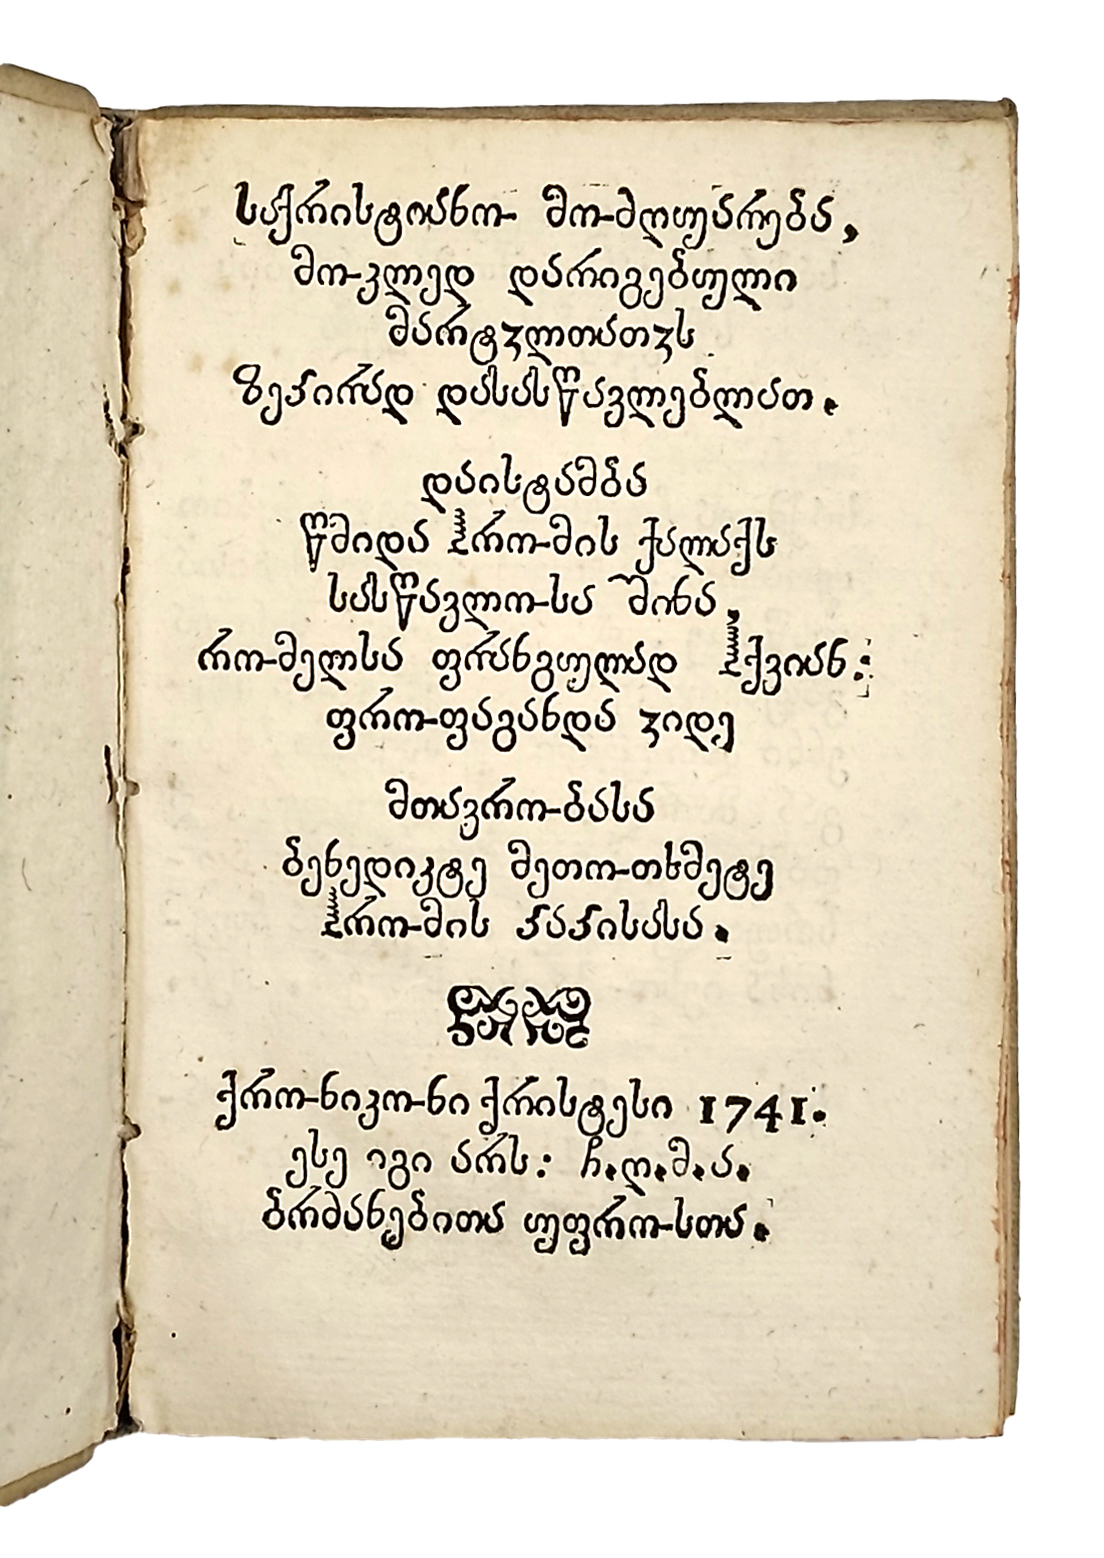 საქრისტიანო მოძღუარება,
მოკლედ დარიგებული
მარტჳლთათჳს
ზეპირად დასასწავლებლათ.
დაისტამბა
წმიდა ჰრომის ქალაქს
სასწავლოსა შინა,
რომელსა ფრანგულად ჰქვიან:
ფროფაგანდა ჳიდე
მთავრობასა
ბენედიკტე მეთოთხმეტე
ჰრომის პაპისასა.
ქრონიკონი ქრისტესი 1741.
ესე იგი არს: ჩ.ღ.მ.ა.
ბრძანებითა უფროსთა.